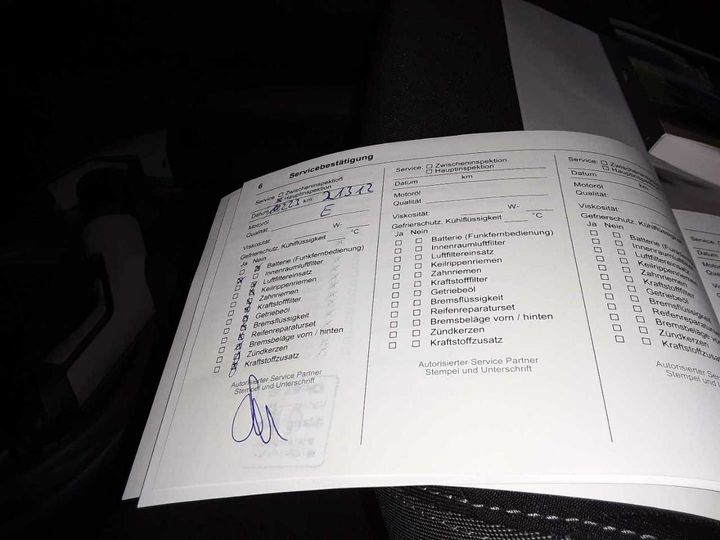 6 Servicebestätigung
Service: Zwischeninspektion
Hauptinspektion
Datum km 21312
Motoröl E
Qualität: W-
Viskosität:
Gefrierschutz, Kühlflüssigkeit °C
Ja Nein
Batterie (Funkfernbedienung)
Innenraumluftfilter
Luftfiltereinsatz
Keilrippenriemen
Zahnriemen
Kraftstofffilter
Getriebeöl
Bremsflüssigkeit
Reifenreparaturset
Bremsbeläge vorn / hinten
Zündkerzen
Kraftstoffzusatz
Autorisierter Service Partner
Stempel und Unterschrift
Service: Zwischeninspektion
Hauptinspektion
Datum km
Motoröl
Qualität: W-
Viskosität:
Gefrierschutz, Kühlflüssigkeit °C
Ja Nein
Batterie (Funkfernbedienung)
Innenraumluftfilter
Luftfiltereinsatz
Keilrippenriemen
Zahnriemen
Kraftstofffilter
Getriebeöl
Bremsflüssigkeit
Reifenreparaturset
Bremsbeläge vorn / hinten
Zündkerzen
Kraftstoffzusatz
Autorisierter Service Partner
Stempel und Unterschrift
Service:
Datum
Motoröl
Qualität:
Viskosität:
Gefrierschutz,
Ja Nein
Batterie
Innenraumluftfilter
Luftfiltereinsatz
Keilrippenriemen
Zahnriemen
Kraftstofffilter
Getriebeöl
Bremsflüssigkeit
Zündkerzen
Kraftstoffzusatz